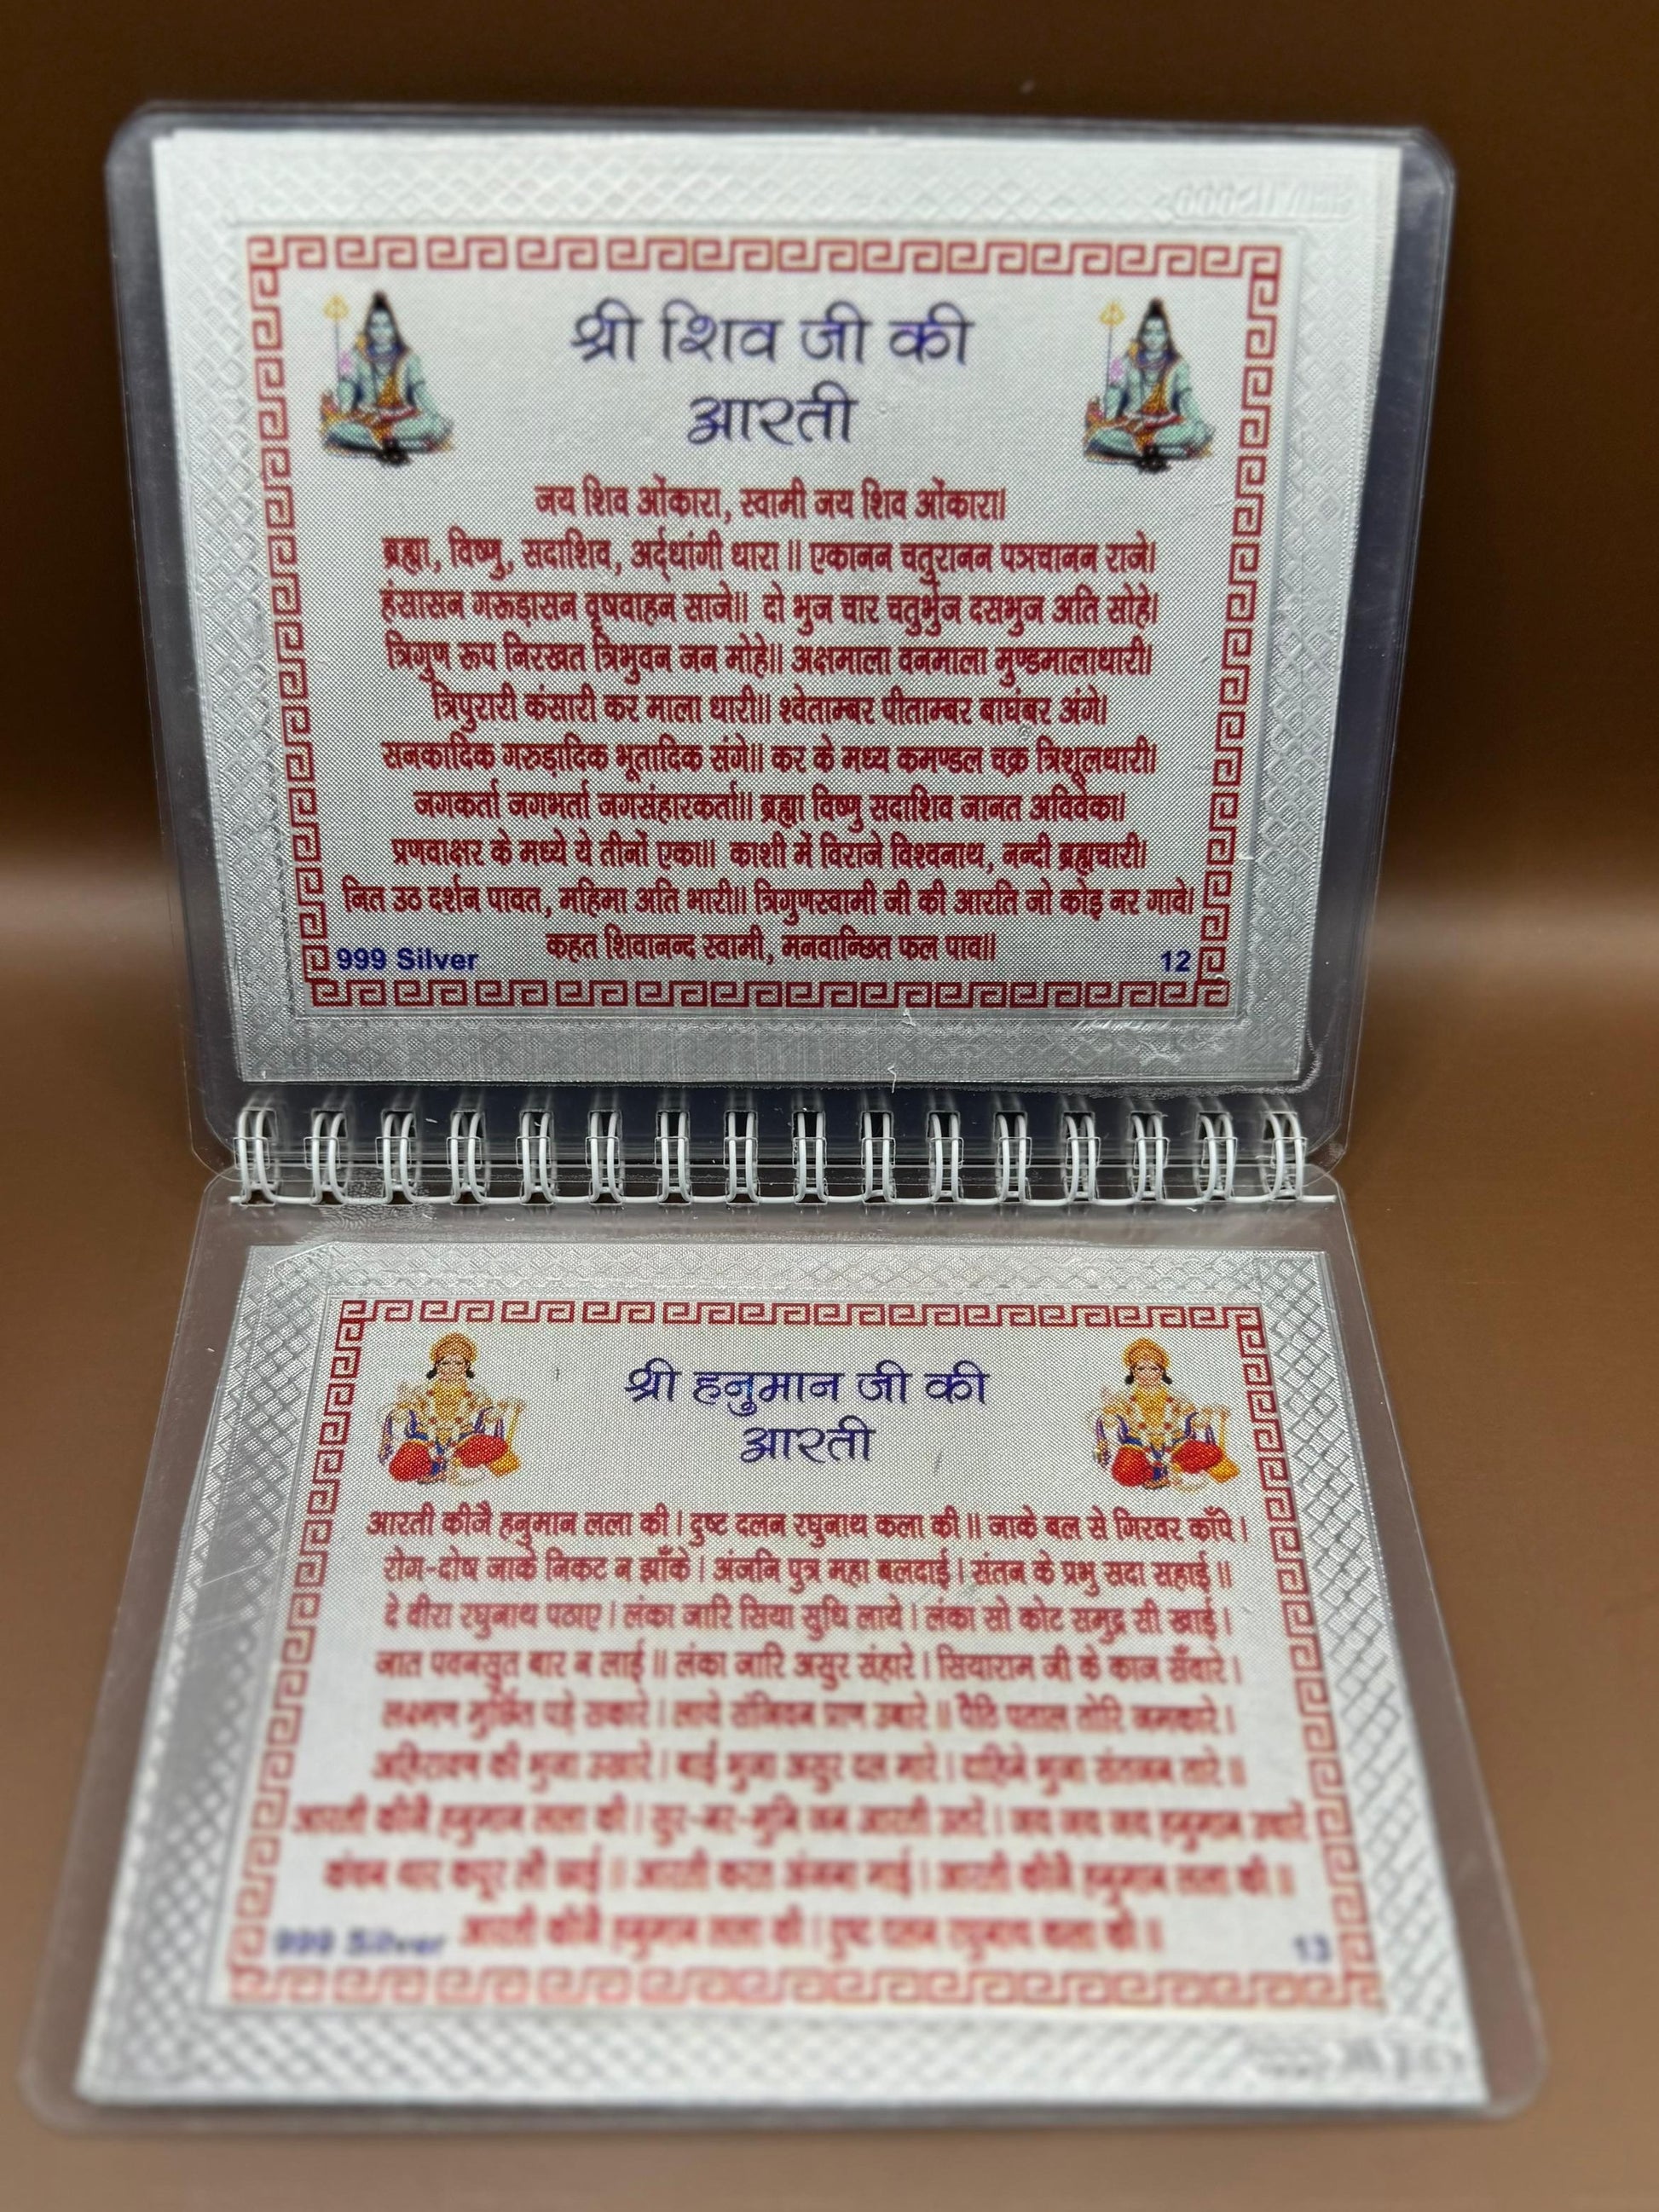 श्री शिव जी की
आरती
जय शिव ओंकारा, स्वामी जय शिव ओंकारा।
ब्रह्मा, विष्णु, सदाशिव, अर्द्धांगी धारा ॥ एकानन चतुरानन पञचानन राजे।
हंसासन गरूड़ासन वृषवाहन साजे॥ दो भुज चार चतुर्भुज दसभुज अति सोहे।
त्रिगुण रूप निरखत त्रिभुवन जन मोहे॥ अक्षमाला वनमाला मुण्डमालाधारी।
त्रिपुरारी कंसारी कर माला धारी॥ श्वेताम्बर पीताम्बर बाघंबर अंगे।
सनकादिक गरुड़ादिक भूतादिक संगे॥ कर के मध्य कमण्डल चक्र त्रिशूलधारी।
जगकर्ता जगभर्ता जगसंहारकर्ता॥ ब्रह्मा विष्णु सदाशिव जानत अविवेका।
प्रणवाक्षर के मध्ये ये तीनों एका॥ काशी में विराजे विश्वनाथ, नन्दी ब्रह्मचारी।
नित उठ दर्शन पावत, महिमा अति भारी॥ त्रिगुणस्वामी जी की आरति जो कोइ नर गावे।
कहत शिवानन्द स्वामी, मनवान्छित फल पाव॥
999 Silver 12
श्री हनुमान जी की
आरती
आरती कीजै हनुमान लला की । दुष्ट दलन रघुनाथ कला की ॥ जाके बल से गिरवर काँपे ।
रोग-दोष जाके निकट न झाँके । अंजनि पुत्र महा बलदाई । संतन के प्रभु सदा सहाई ॥
दे वीरा रघुनाथ पठाए । लंका जारि सिया सुधि लाये । लंका सो कोट समुद्र सी खाई ।
जात पवनसुत बार न लाई ॥ लंका जारि असुर संहारे । सियाराम जी के काज सँवारे ।
लक्ष्मण मुर्छित पड़े सकारे । लाये संजिवन प्राण उबारे ॥ पैठि पताल तोरि जमकारे ।
अहिरावण की भुजा उखारे । बाईं भुजा असुर दल मारे । दाहिने भुजा संतजन तारे ॥
आरती कीजै हनुमान लला की । सुर-नर-मुनि जन आरती उतारे । जय जय जय हनुमान उचारे
कंचन थार कपूर लौ छाई ॥ आरती करत अंजना माई । आरती कीजै हनुमान लला की ॥
आरती कीजै हनुमान लला की । दुष्ट दलन रघुनाथ कला की ॥
999 Silver 13